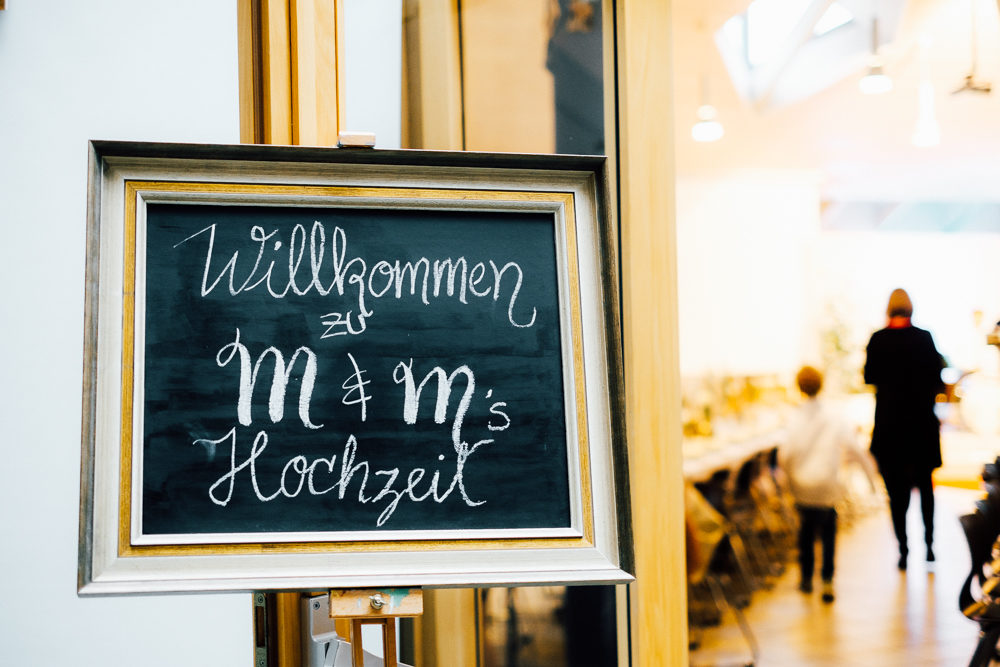 Willkommen
zu
M & M's
Hochzeit